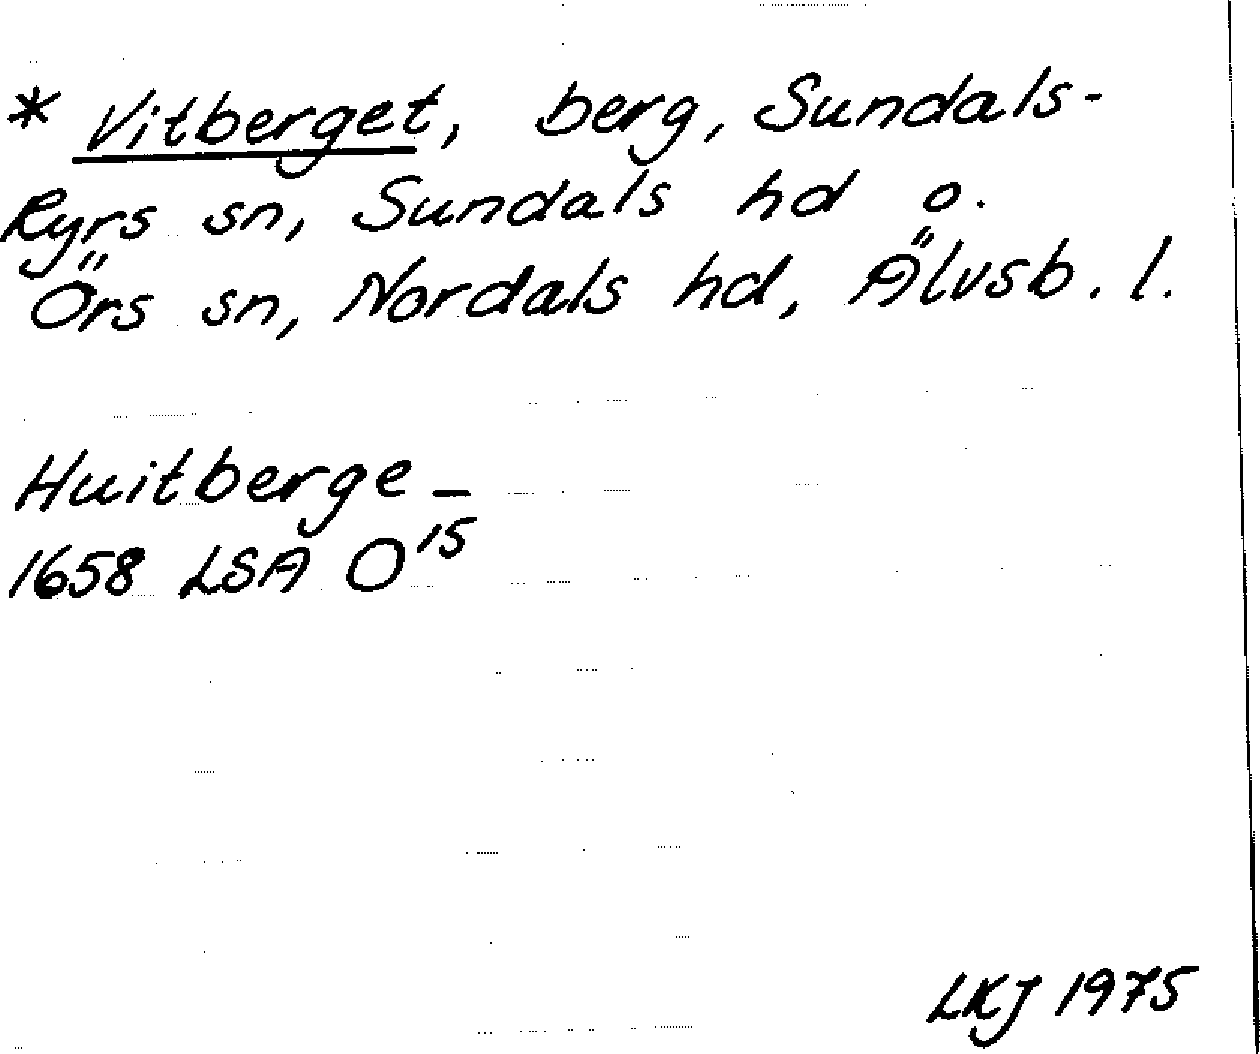 * Vitberget, berg, Sundals-
Ryrs sn, Sundals hd o.
Örs sn, Nordals hd, Älvsb. l.
Huitberge –
1658 LSA O 15
LKJ 1975